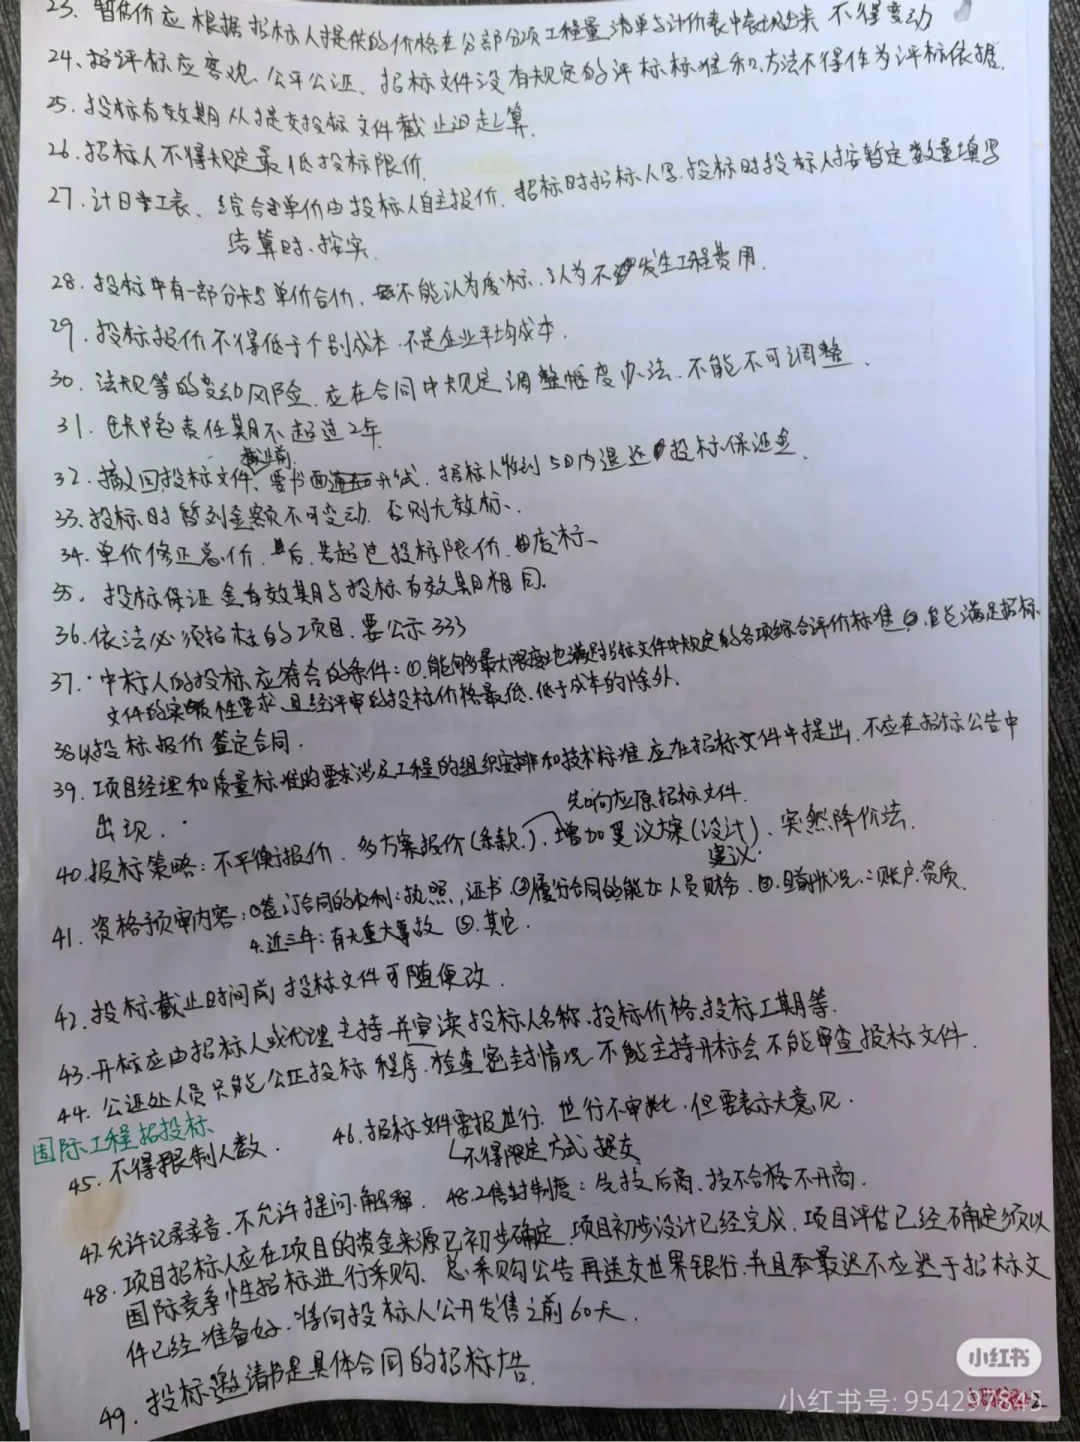 23. 暂估价应根据招标人提供的价格在分部分项工程量清单与计价表中表现出来 不得变动
24、招评标应客观、公平公证、招标文件没有规定的评标标准和方法不得作为评标依据.
25. 投标有效期从提交投标文件截止日起算.
26. 招标人不得规定最低投标限价.
27. 计日工表、综合单价由投标人自主报价. 招标时招标人写. 投标时投标人按暂定数量填写
结算时、按实.
28. 投标中有一部分未写单价合价. 不能认为废标. 认为不发生工程费用.
29. 投标报价不得低于个别成本. 不是企业平均成本.
30. 法规等的变动风险. 应在合同中规定调整幅度办法. 不能不可调整.
31. 缺陷责任期不超过2年
截止前
32. 撤回投标文件、要书面形式. 招标人收到5日内退还投标保证金.
33. 投标时暂列金额不可变动. 否则无效标.
34. 单价修正总价. 后. 若超过投标限价. 废标、
35. 投标保证金有效期与投标有效期相同.
36. 依法必须招标的项目. 要公示 333
37. 中标人的投标应符合的条件: ①. 能够最大限度地满足招标文件中规定的各项综合评价标准 ②. 能满足招标
文件的实质性要求. 且经评审的投标价格最低. 低于成本的除外.
38 以投标报价签定合同.
39. 项目经理和质量标准的要求涉及工程的组织安排和技术标准 应在招标文件中提出. 不应在招标公告中
出现.
先响应原招标文件.
40. 投标策略: 不平衡报价. 多方案报价(条款.). 增加建议方案(设计). 突然降价法.
建议.
41. 资格预审内容: ①签订合同的权利: 执照, 证书 ②履行合同的能力 人员财务. ③. 目前状况. 账户. 资质.
4. 近三年: 有无重大事故 ⑤. 其它.
42. 投标截止时间前 投标文件可随便改.
43. 开标应由招标人或代理主持并宣读投标人名称. 投标价格. 投标工期等.
44. 公证处人员只能公正投标程序. 检查密封情况. 不能主持开标会 不能审查投标文件.
国际工程招投标、
45. 不得限制人数.
46. 招标文件要报世行. 世行不审批. 但需表示无意见.
不得限定方式提交
47. 允许记录录音. 不允许提问. 解释.
48. 2信封制度: 先技后商. 技不合格不开商.
48. 项目招标人应在项目的资金来源已初步确定. 项目初步设计已经完成. 项目评估已经确定须以
国际竞争性招标进行采购. 总采购公告再送交世界银行. 并且最迟不应迟于招标文
件已经准备好. 将向投标人公开发售之前60天.
49. 投标邀请书是具体合同的招标广告.
小红书
小红书号: 954297845